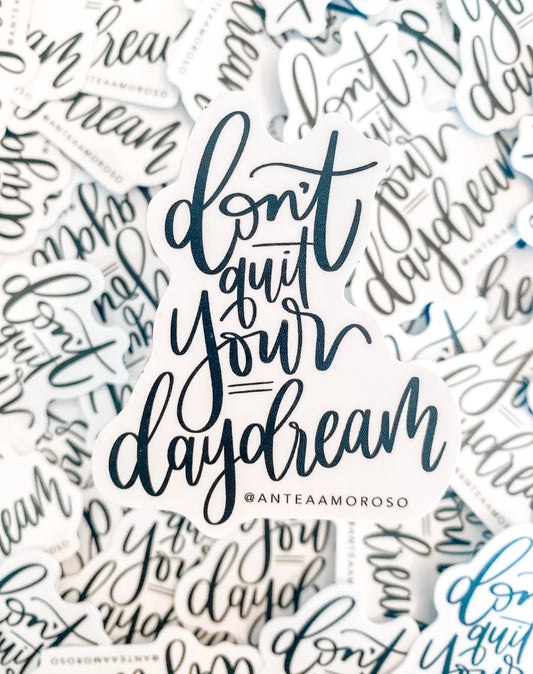 don't
quit
your
daydream
@ANTEAAMOROSO